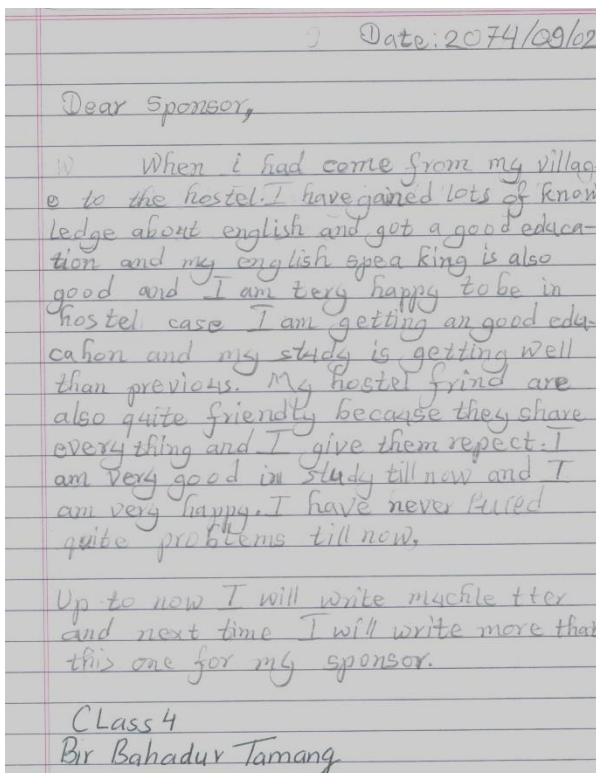 Date: 2074/09/02
Dear Sponsor,
When i had come from my villag-
e to the hostel. I have gained lots of know
ledge about english and got a good educa-
tion and my english spea king is also
good and I am tery happy to be in
hostel case I am getting an good edu-
cahon and my study is getting well
than previous. My hostel frind are
also quite friendty because they share
every thing and I give them repect. I
am very good in study till now and I
am very happy. I have never
quite problems till now,
Up to now I will write muchle tter
and next time I will write more than
this one for my sponsor.
CLass 4
Bir Bahadur Tamang